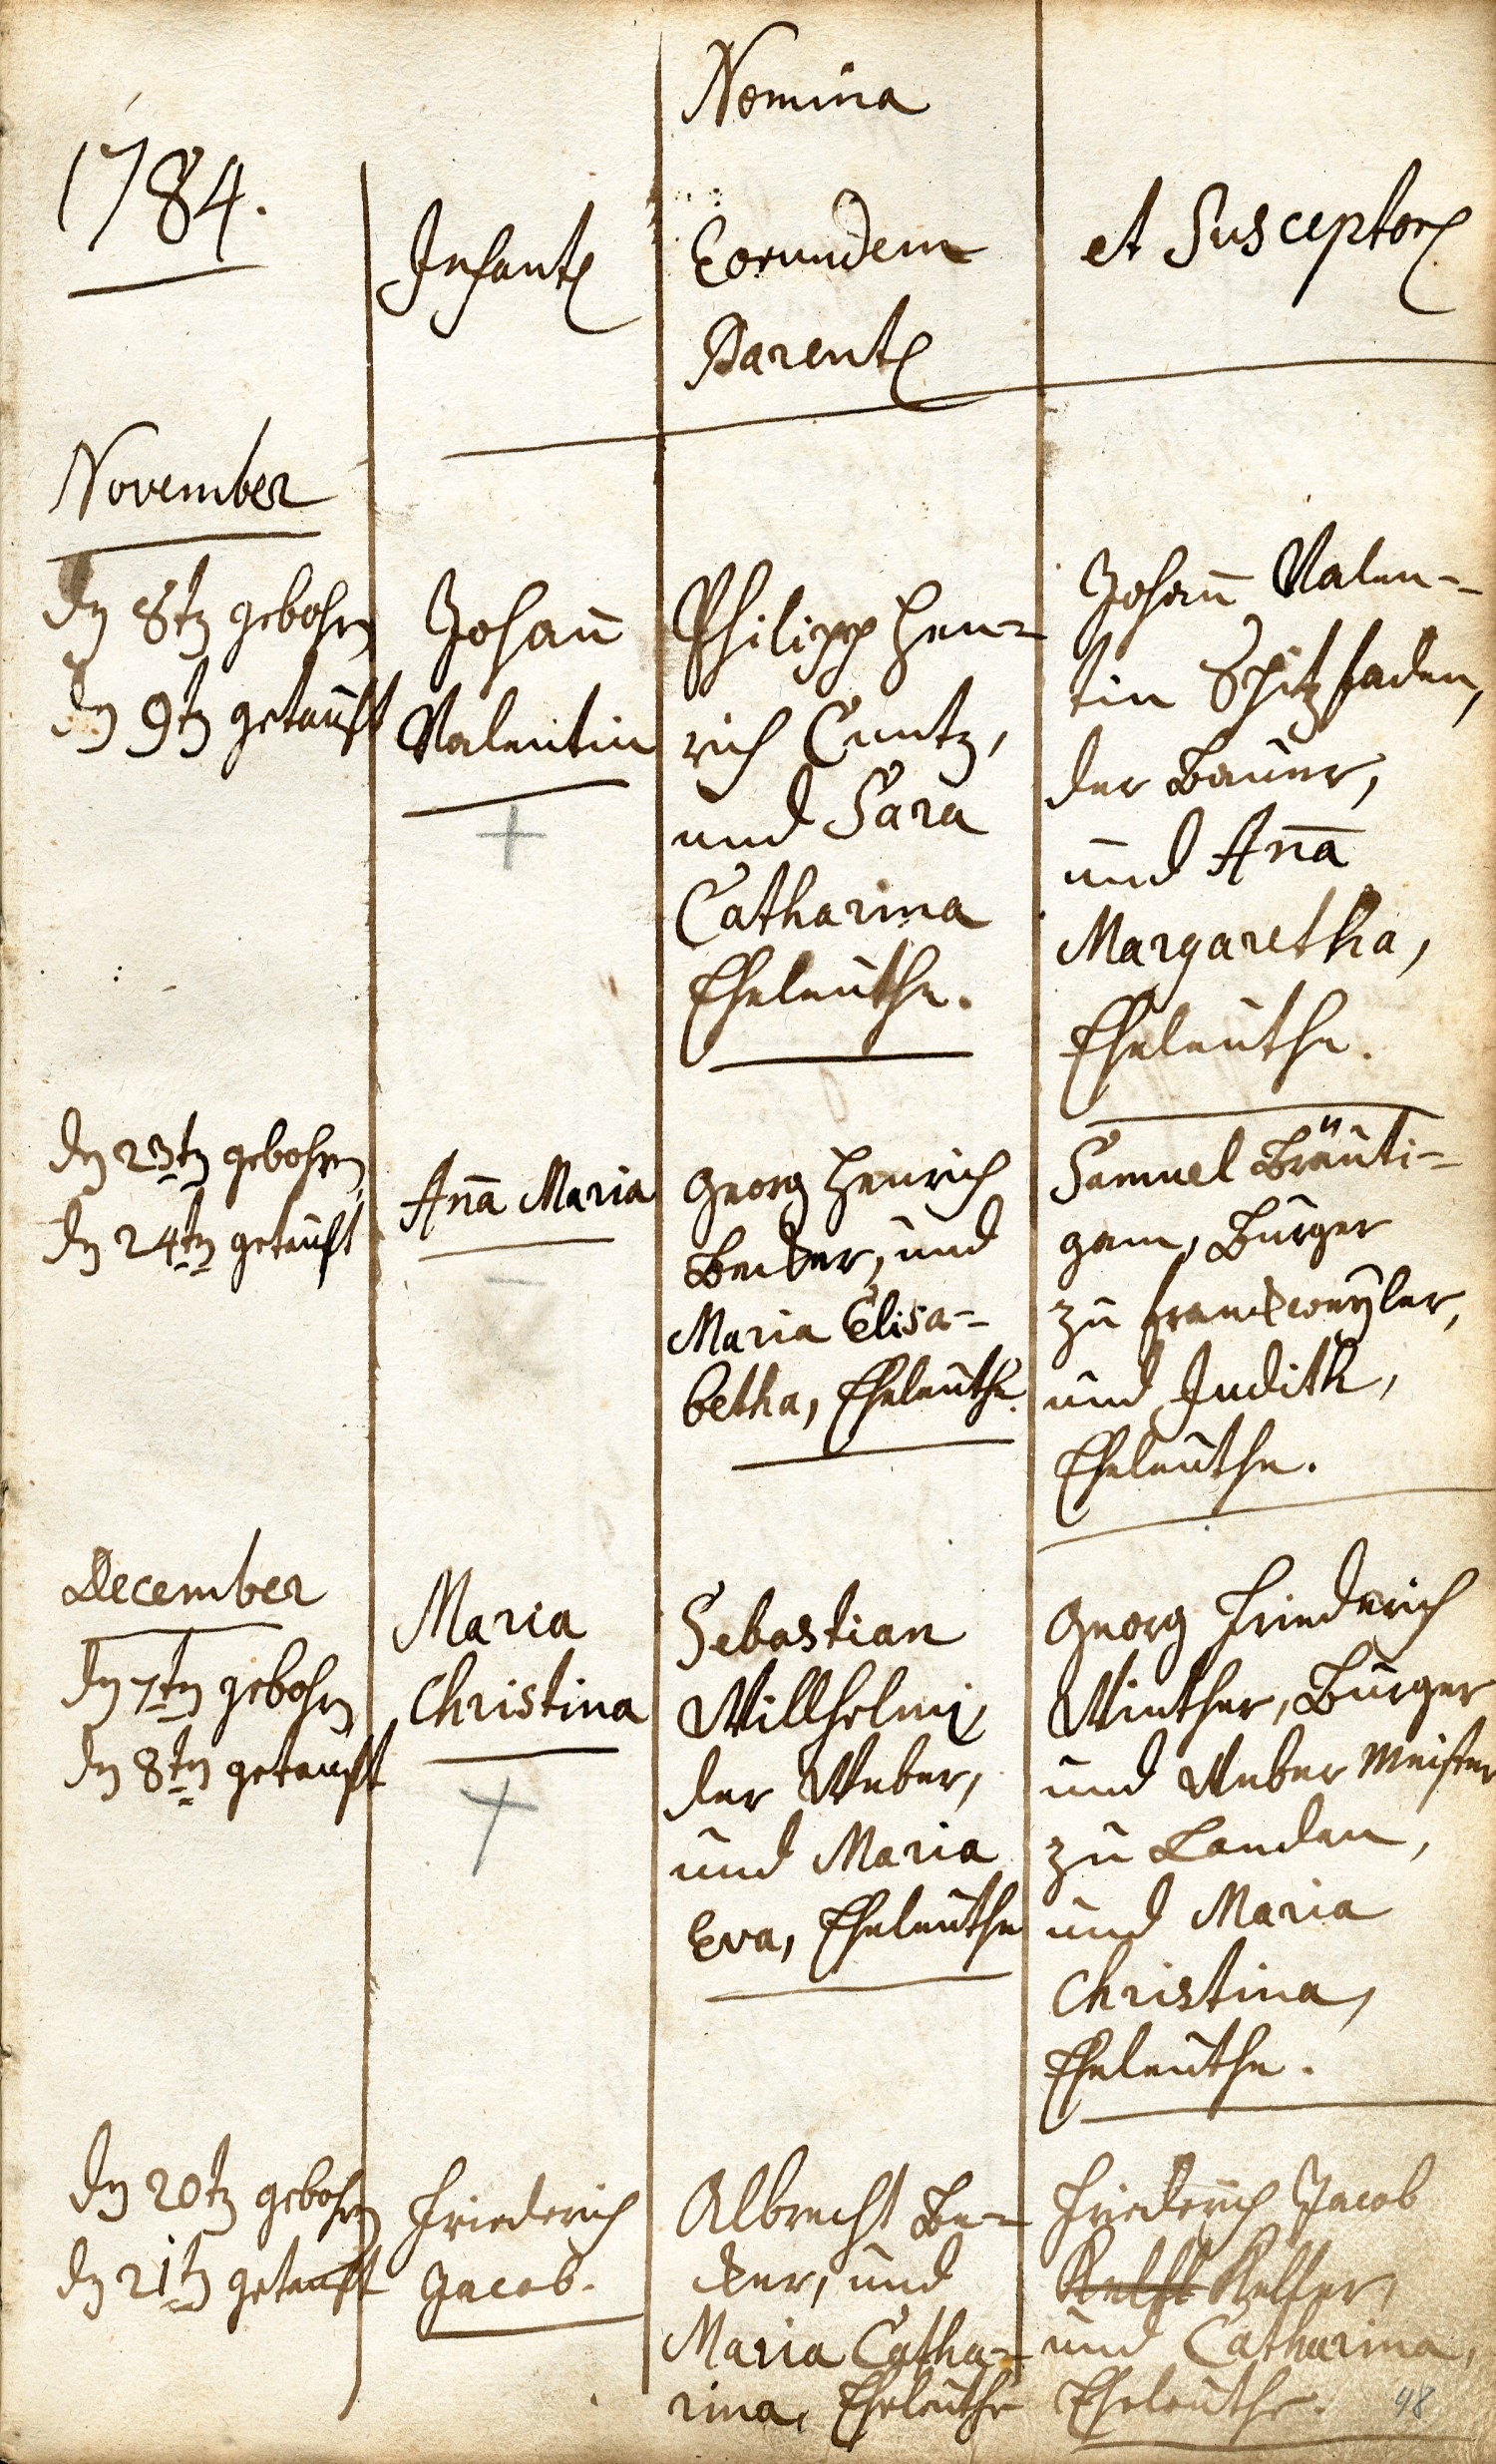 Nomina
1784.
Infant
Eorundem
Parent
et Susceptor
November
dn 8tn gebohrn
dn 9tn getauft
Johan̄
Valentin
Philipp Hen=
rich Cuntz,
und Sara
Catharina
Eheleuthe.
Johan̄ Valen=
tin Spitzfaden,
der Bauer,
und An̄a
Margaretha,
Eheleuthe.
dn 23tn gebohrn
dn 24tn getauft
An̄a Maria
Georg Henrich
Becker, und
Maria Elisa=
betha, Eheleuthe.
Samuel Bräuti=
gam, Burger
zu Franckweyler,
und Judith,
Eheleuthe.
December
dn 7tn gebohrn
dn 8tn getauft
Maria
Christina
Sebastian
Willhelmi,
der Weber,
und Maria
Eva, Eheleuthe
Georg Friederich
Winther, Burger
und Weber Meister
zu Landau,
und Maria
Christina,
Eheleuthe.
dn 20tn gebohrn
dn 21tn getauft
Friederich
Jacob.
Albrecht Be=
cker, und
Maria Catha=
rina, Eheleuthe
Friederich Jacob
Keller,
und Catharina,
Eheleuthe.
48